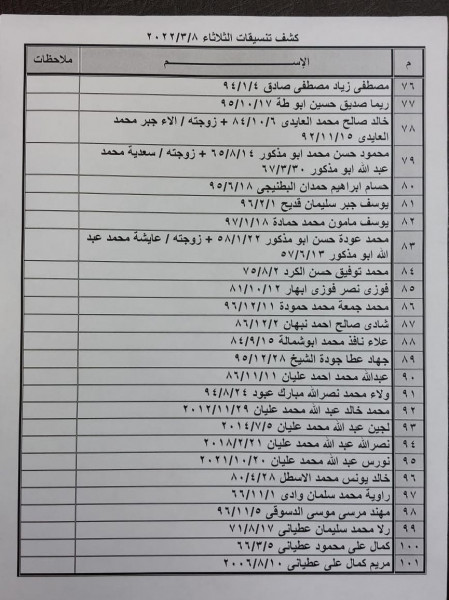 كشف تنسيقات الثلاثاء ٢٠٢٢/٣/٨
م الإســـم ملاحظات
٧٦ مصطفى زياد مصطفى صادق ٩٤/١/٤
٧٧ ريما صديق حسين ابو طة ٩٥/١٠/١٧
٧٨ خالد صالح محمد العايدى ٨٤/١٠/٦ + زوجته / الاء جبر محمد
العايدى ٩٢/١١/١٥
٧٩ محمود حسن محمد ابو مذكور ٦٥/٨/١٤ + زوجته / سعدية محمد
عبد الله ابو مذكور ٦٧/٣/٣٠
٨٠ حسام ابراهيم حمدان البطنيجي ٩٥/٦/١٨
٨١ يوسف جبر سليمان قديح ٩٦/٢/١
٨٢ يوسف مامون محمد حمادة ٩٧/١/١٨
٨٣ محمد عودة حسن ابو مذكور ٥٨/١/٢٢ + زوجته / عايشة محمد عبد
الله ابو مذكور ٥٧/٦/١٣
٨٤ محمد توفيق حسن الكرد ٧٥/٨/٢
٨٥ فوزى نصر فوزى ابهار ٨١/١٠/١٢
٨٦ محمد جمعة محمد حمودة ٩٦/١٢/١١
٨٧ شادى صالح احمد نبهان ٨٦/١٢/٢
٨٨ علاء نافذ محمد ابوشمالة ٨٤/٩/١٥
٨٩ جهاد عطا جودة الشيخ ٩٥/١٢/٢٨
٩٠ عبدالله محمد احمد عليان ٨٦/١١/١١
٩١ ولاء محمد نصرالله مبارك عبود ٩٤/٨/٢٤
٩٢ محمد خالد عبد الله محمد عليان ٢٠١٢/١١/٢٩
٩٣ لجين عبد الله محمد عليان ٢٠١٤/٧/٥
٩٤ نصرالله عبد الله محمد عليان ٢٠١٨/٢/٢١
٩٥ نورس عبد الله محمد عليان ٢٠٢١/١٠/٢٠
٩٦ خالد يونس محمد الاسطل ٨٠/٤/٢٨
٩٧ راوية محمد سلمان وادى ٦٦/١١/١
٩٨ مهند مرسى موسى الدسوقي ٩٦/١١/٥
٩٩ رلا محمد سليمان عطيانى ٧١/٨/١٧
١٠٠ كمال على محمود عطيانى ٦٦/٣/٥
١٠١ مريم كمال على عطيانى ٢٠٠٦/٨/١٠